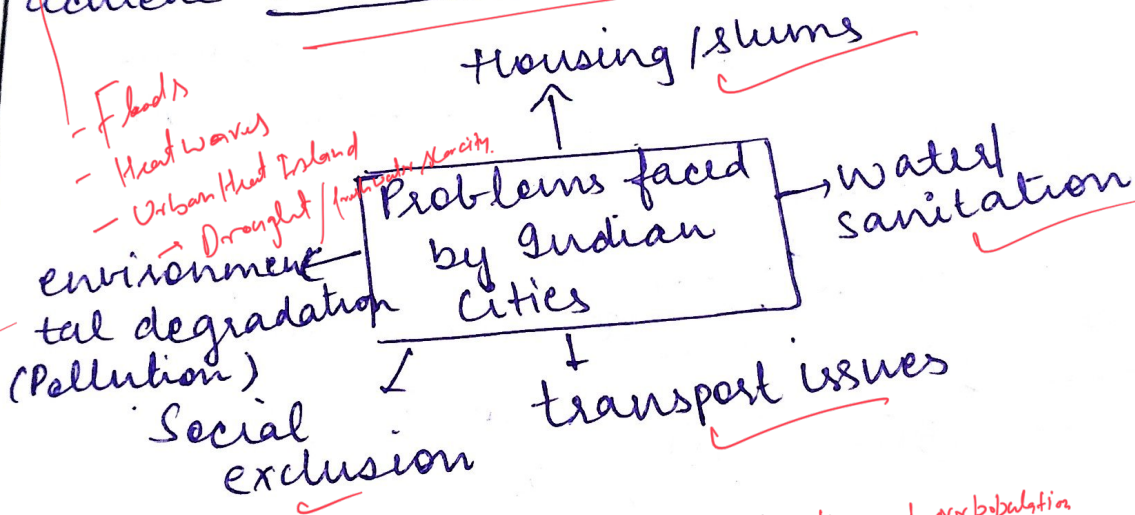 Housing/slums
- Floods
- Heat waves
- Urban Heat Island
→ Drought / fresh water scarcity.
Problems faced
by Indian
Cities
water/
sanitation
environmen
tal degradation
(Pollution)
Social
exclusion
transport issues
overpopulation